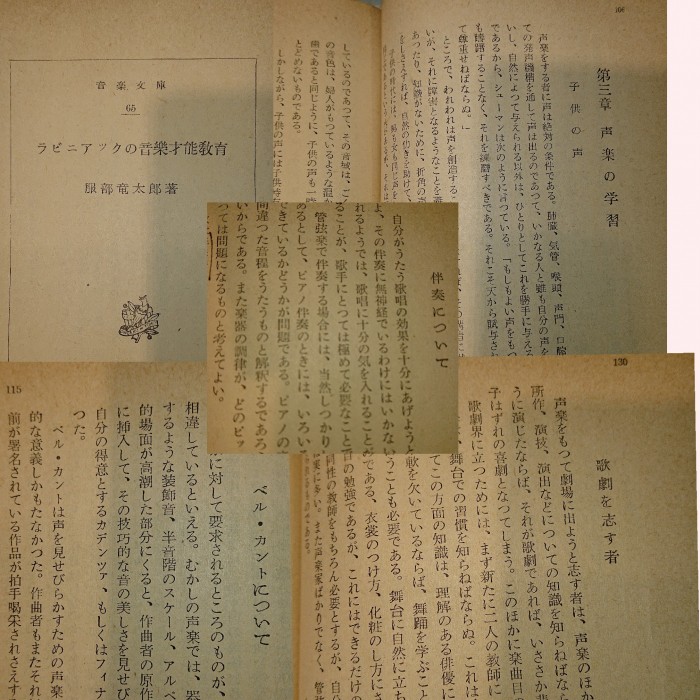 音楽文庫
65
ラビニアックの音樂才能敎育
服部竜太郎著
第三章 声楽の学習
子供の声
声楽をする者に声は絶対の条件である。肺臓、気管、喉頭、声門、口腔
ての発声機構を通して声は出るのであつて、いかなる人と雖も自分の声を
いし、自然によつて与えられる以外は、ひとりとしてこれを勝手に与える
であるから、シューマンは次のように言つている。「もしもよい声をもつ
も躊躇することなく、それを練習すべきである。それこそ天から賦与され
て尊重せねばならぬ。」
ところで、われわれは声を創造するこ
いが、それに障害となるようなことを
あつたり、知識がないために、折角の声
しているのであつて、その音域は、ご
の音色は、婦人がもつているような温か
徴であると同じように、子供の声も一時
とどめないものである。
しかしながら、子供の声には子供時
伴奏について
自分がうたう歌唱の効果を十分にあげよう
よ、その伴奏に無神経でいるわけにはいかない
れるようでは、歌唱に十分の気を入れること
ることが、歌手にとつては極めて必要なこと
管弦楽で伴奏する場合には、当然しつかり
あるとして、ピアノ伴奏のときには、いろいろ
できているかどうかが問題である。ピアノの
間違つた音程をうたうものと解釈するであろ
いからである。また楽器の調律が、どのピア
つては問題になるものと考えてよい。
130
歌劇を志す者
声楽をもつて劇場に出ようと志す者は、声楽のほか
所作、演技、演出などについての知識を知らねばなら
うに演じたならば、それが歌劇であれば、いささか
子はずれの喜劇となつてしまう。このほかに楽曲目
歌劇界に立つためには、まず新たに二人の教師に
舞台での習慣を知らねばならぬ。これは
てこの方面の知識は、理解のある俳優に
軟を欠いているならば、舞踊を学ぶこと
うことも必要である。舞台に自然に立ち
である。衣裳のつけ方、化粧のし方にさ
の勉強であるが、これにはできるだけの
同性の教師をもちろん必要とするが、自分
に多い。また声楽家ばかりでなく、管
115
ベル・カントについて
に対して要求されるところのものが、
相違しているといえる。むかしの声楽では、器
するような装飾音、半音階のスケール、アルペ
的場面が高潮した部分にくると、作曲者の原作
に挿入して、その技巧的な音の美しさを見せび
自分の得意とするカデンツァ、もしくはフィナ
つた。
ベル・カントは声を見せびらかすための声楽
的な意義しかもたなかつた。作曲者もまたそれ
前が署名されている作品が拍手喝采されさえす